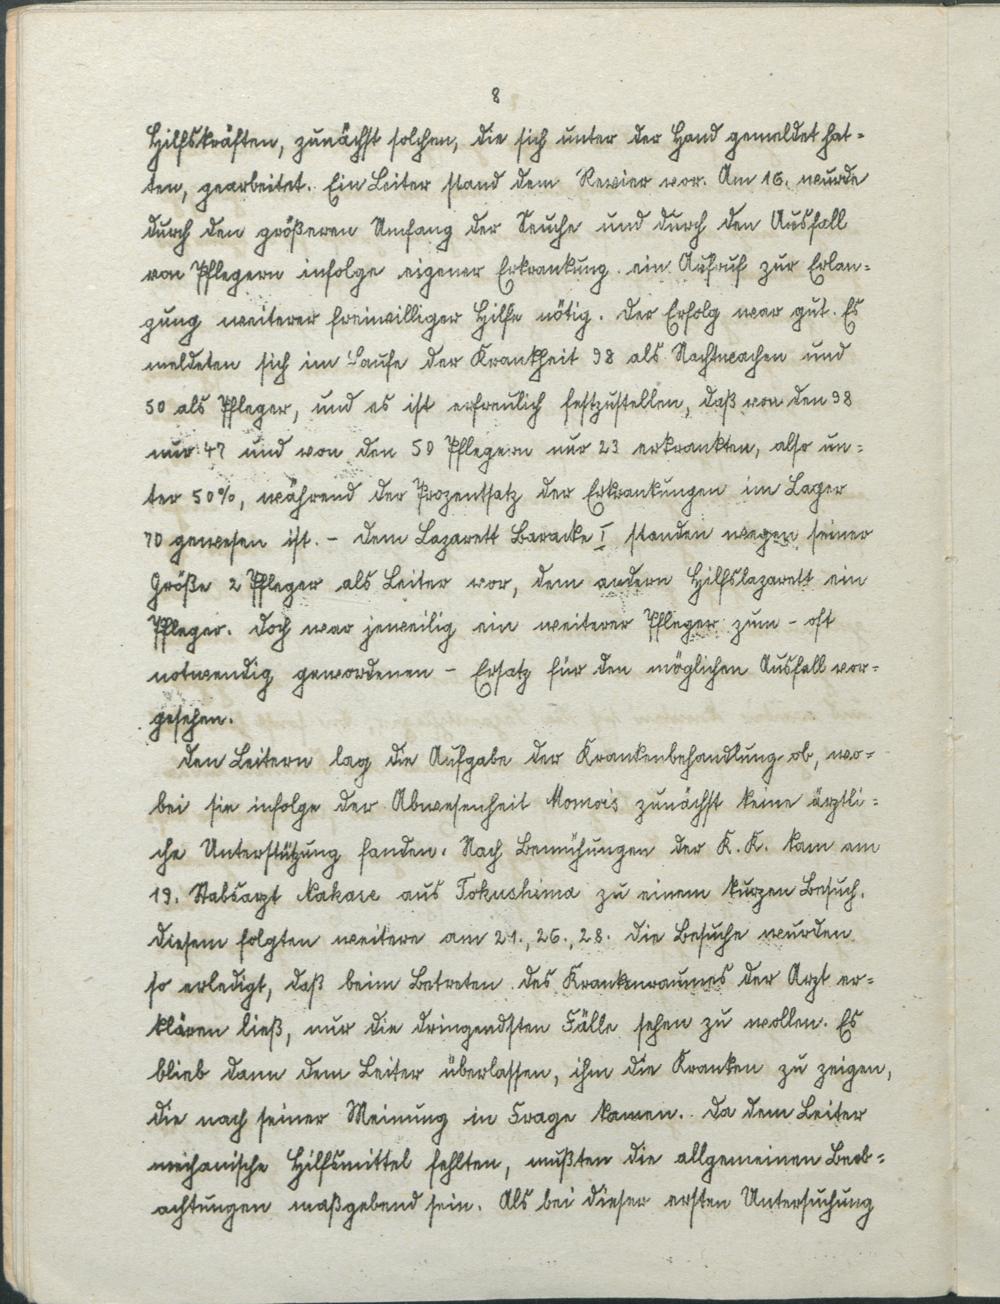 8
Hilfskräften, zunächst solchen, die sich unter der Hand gemeldet hat-
ten, gearbeitet. Ein Leiter stand dem Revier vor. Am 16. wurde
durch den größeren Umfang der Seuche und durch den Ausfall
von Pflegern infolge eigener Erkrankung ein Aufruf zur Erlan-
gung weiterer freiwilliger Hilfe nötig. Der Erfolg war gut. Es
meldeten sich im Laufe der Krankheit 98 als Nachtwachen und
50 als Pfleger, und es ist erfreulich festzustellen, daß von den 98
nur 47 und von den 50 Pflegern nur 23 erkrankten, also un-
ter 50%, während der Prozentsatz der Erkrankungen im Lager
70 gewesen ist. - Dem Lazarett Baracke I standen wegen seiner
Größe 2 Pfleger als Leiter vor, dem andern Hilfslazarett ein
Pfleger. Doch war jeweilig ein weiterer Pfleger zum - oft
notwendig gewordenen - Ersatz für den möglichen Ausfall vor-
gesehen.
Den Leitern lag die Aufgabe der Krankenbehandlung ob, wo-
bei sie infolge der Abwesenheit Momois zunächst keine ärztli-
che Unterstützung fanden. Nach Bemühungen der K. K. kam am
19. Stabsarzt Nakase aus Tokushima zu einem kurzen Besuch.
Diesem folgten weitere am 21., 26., 28. Die Besuche wurden
so erledigt, daß beim Betreten des Krankenraumes der Arzt er-
klären ließ, nur die dringendsten Fälle sehen zu wollen. Es
blieb dann dem Leiter überlassen, ihm die Kranken zu zeigen,
die nach seiner Meinung in Frage kamen. Da dem Leiter
mechanische Hilfsmittel fehlten, mußten die allgemeinen Beob-
achtungen maßgebend sein. Als bei dieser ersten Untersuchung